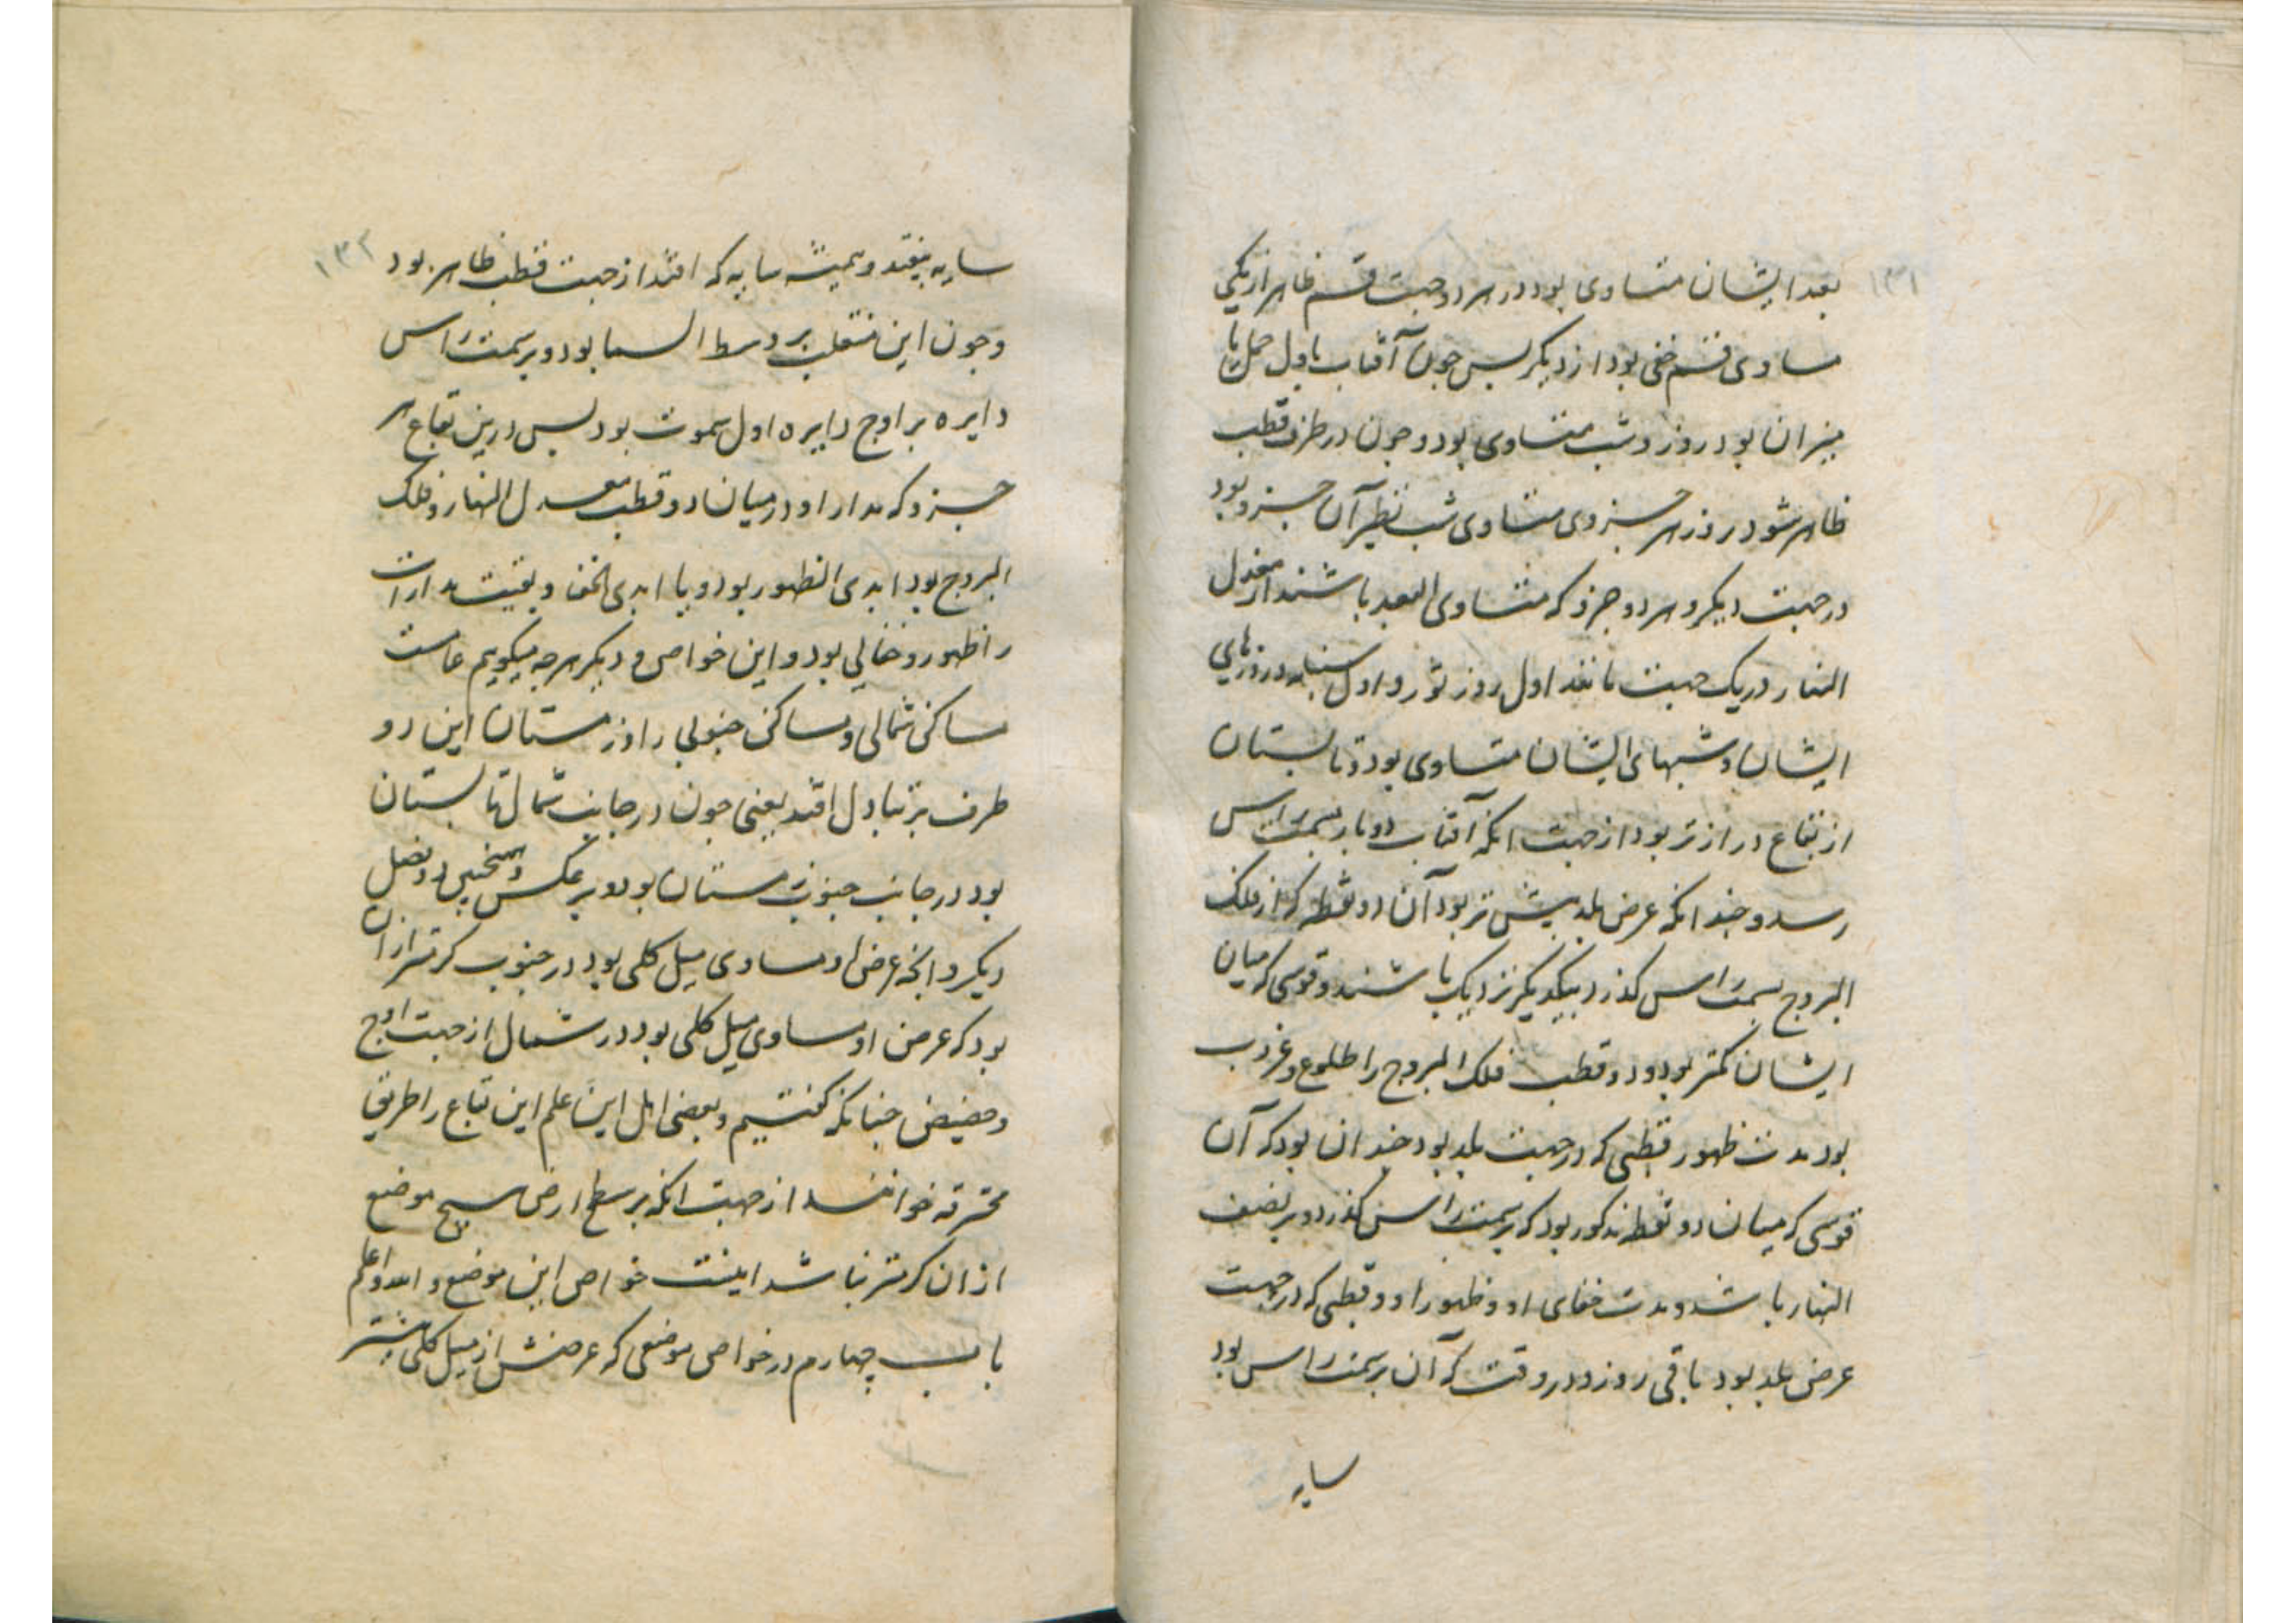 ۱۳۱
بعد ایشان متساوی بود در هر دو جهت قسم ظاهر از یکی
مساوی قسم خفی بود از دیگر پس چون آفتاب باول حمل یا
میزان بود روز و شب متساوی بود و چون در طرف قطب
ظاهر شود روز هر جزوی متساوی شب نظیر آن جزو بود
در جهت دیگر و هر دو جزو که متساوی البعد باشند از معدل
النهار در یک جهت مانند اول روز ثور و اول سنبله روزهای
ایشان و شبهای ایشان متساوی بود و تابستان
از بقاع درازتر بود از جهت انکه آفتاب دو بار بسمت راس
رسد و چندانکه عرض بلد بیش تر بود آن دو نقطه که از فلک
البروج بسمت راس کذرد بیکدیکر نزدیک باشند و قوسی که میان
ایشان کمتر بود و دو قطب فلک البروج را طلوع و غروب
بود مدت ظهور قطبی که در جهت بلد بود چندان بود که آن
قوسی که میان دو نقطه مذکور بود که بر سمت راس کذرد و بر نصف
النهار باشد و مدت خفای او و ظهور او و قطبی که در جهت
عرض بلد بود باقی روز و در وقت که آن بر سمت راس بود
سایه
۱۳۲
سایه بیفتد و همیشه سایه که افتد از جهت قطب ظاهر بود
و چون این منقلب بر وسط السما بود و بر سمت راس
دایره بر اوج دایره اول سموت بود پس درین بقاع هر
جزو که مدار او در میان دو قطب معدل النهار و فلک
البروج بود ابدی الظهور بود و یا ابدی الخفا و بقیت مدارات
را ظهور و خفائی بود و این خواص و دیکر هر چه میکوییم عامست
ساکن شمالی و ساکن جنوبی را و زمستان این دو
طرف بر تبادل افتد یعنی چون در جانب شمال تابستان
بود در جانب جنوب زمستان بود و بر عکس و همچنین دو فصل
دیکر و انچه عرض او مساوی میل کلی بود در جنوب کرمتر از ان
بود که عرض او مساوی میل کلی بود در شمال از جهت اوج
و حضیض چنانکه کفتیم و بعضی اهل این علم این بقاع را طریق
محترقه خوانند از جهت انکه بر سطح ارض هیچ موضع
از ان کرمتر نباشد اینست خواص این موضع و الله اعلم
باب چهارم در خواص موضعی که عرضش از میل کلی بیشتر